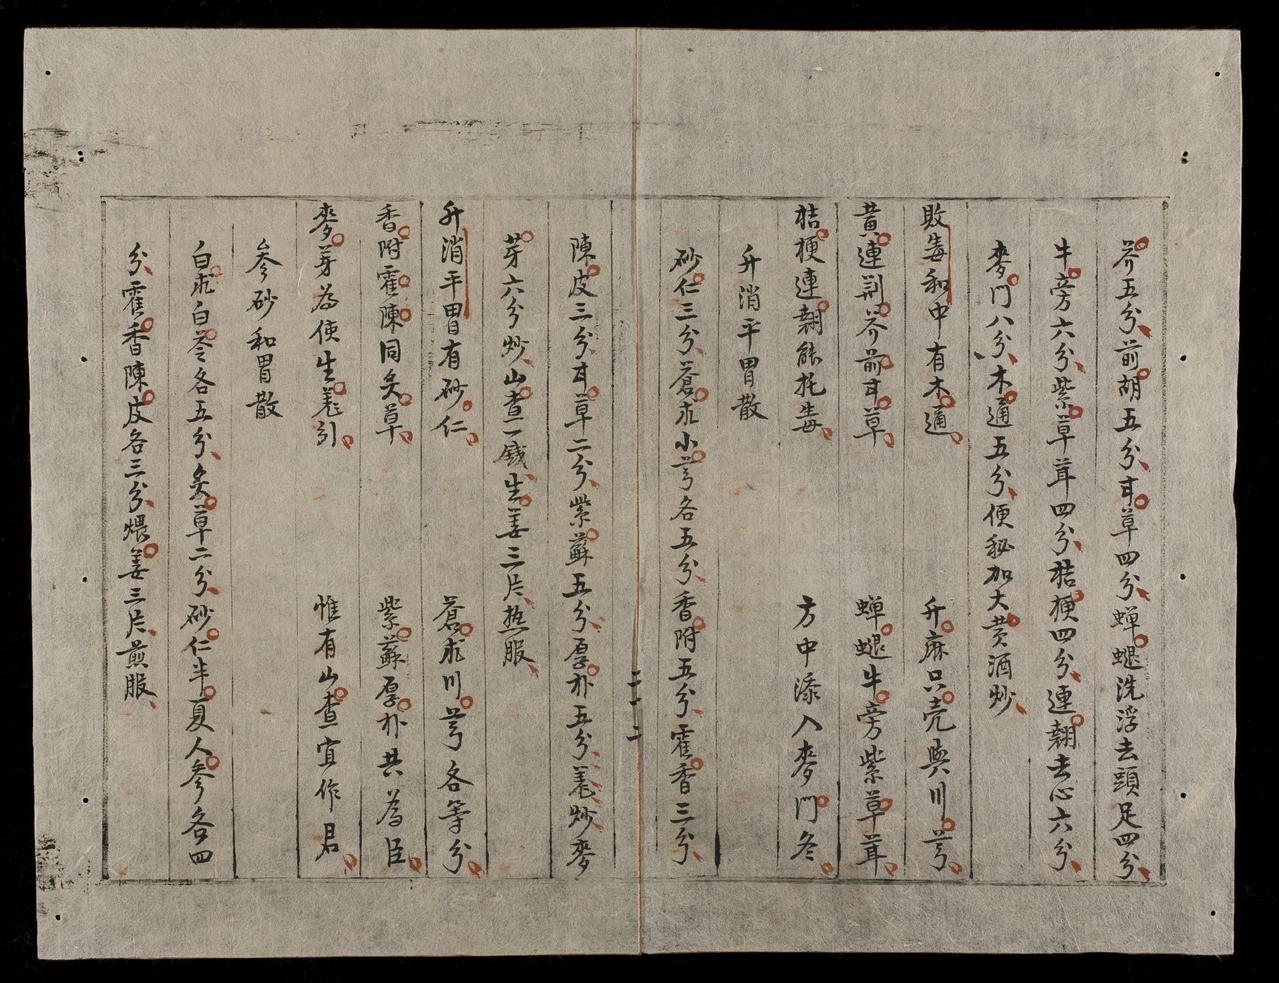 芥五分前胡五分甘草四分蝉蜕洗浮去頭足四分
牛旁六分紫草茸四分桔梗四分連翹去心六分
麥門八分木通五分便秘加大黄酒炒
敗毒和中有木通　升麻只壳與川芎
黄連荆芥前甘草　蝉蜕牛旁紫草茸
桔梗連翹能托毒　方中添入麥門冬
升消平胃散
砂仁三分蒼朮小芎各五分香附五分藿香三分
二一二
陳皮三分甘草二分紫蘇五分厚朴五分姜炒麥
芽六分炒山查一錢生姜三片热服
升消平胃有砂仁　蒼朮川芎各等分
香附藿陳同炙草　紫蘇厚朴共為臣
麥芽為使生姜引　惟有山查宜作君
参砂和胃散
白朮白苓各五分炙草二分砂仁半夏人參各四
分藿香陳皮各三分煨姜三片煎服